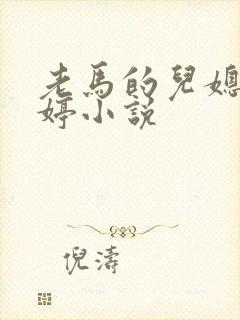 老馬的兒媳
婷小說
倪濤